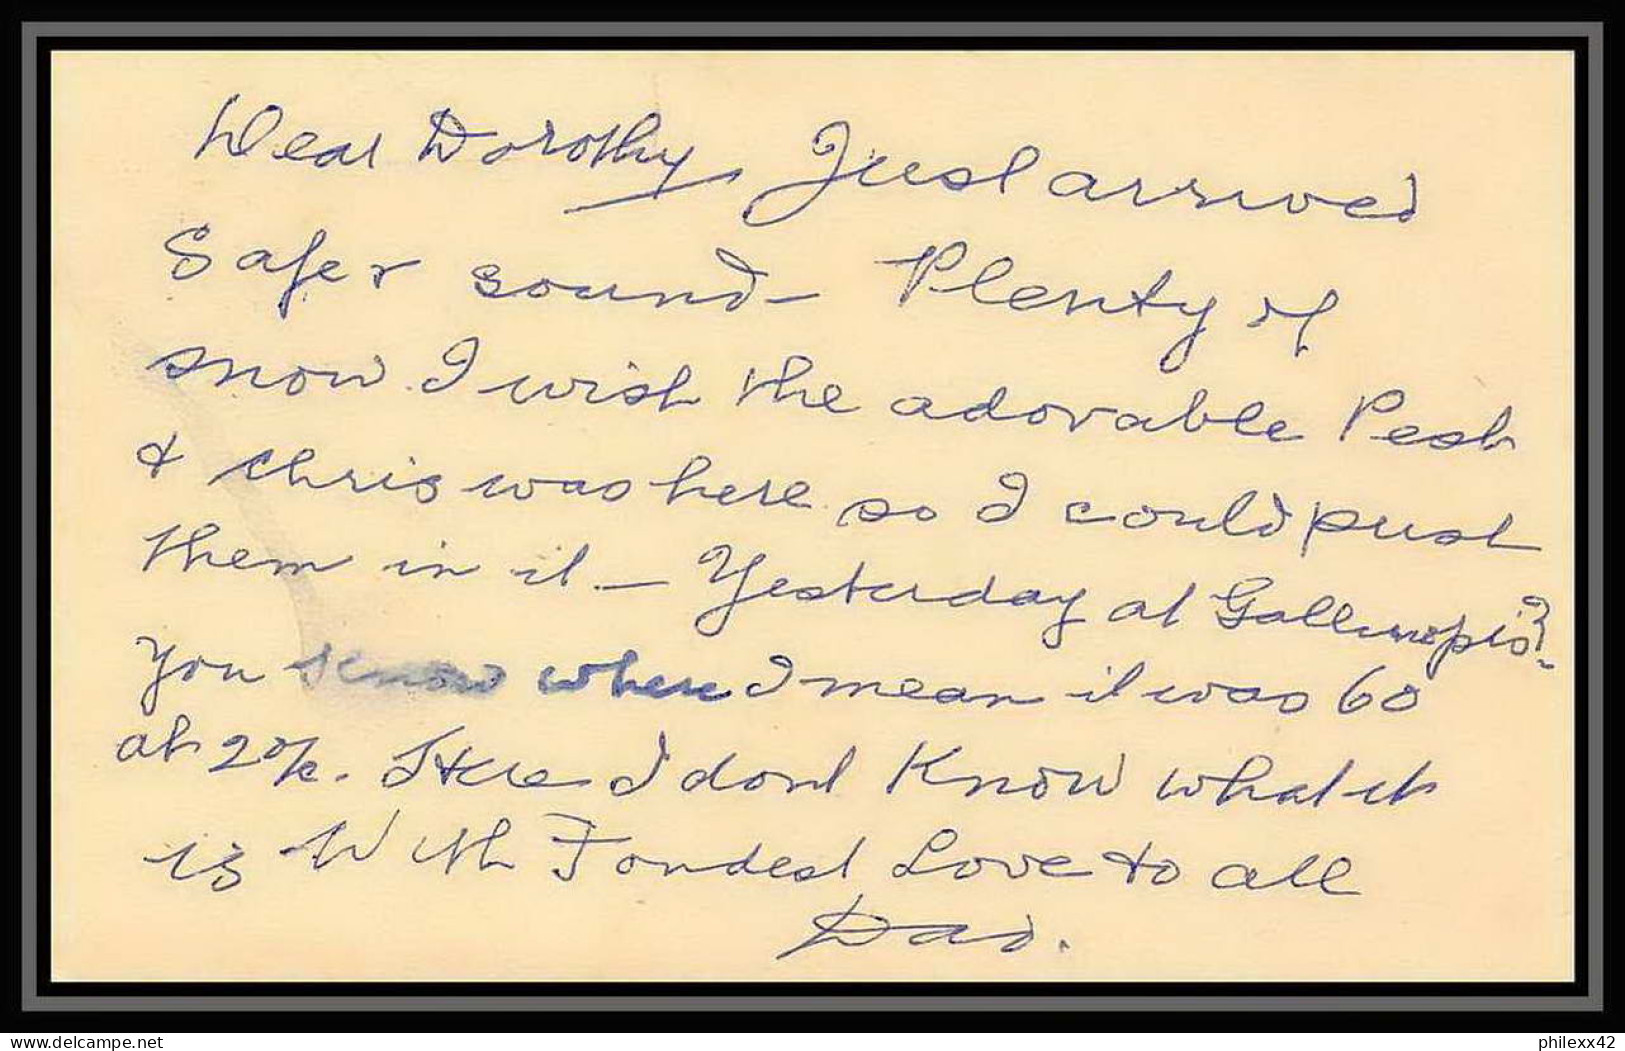 Dear Dorothy, Just arrived
Safe & sound - Plenty of
snow. I wish the adorable Pest
& Chris was here so I could push
them in it - Yesterday at
You know where I mean it was 60
at 20/c. Here I dont Know what it
is With Fondest Love to all
Dad.
philexx42